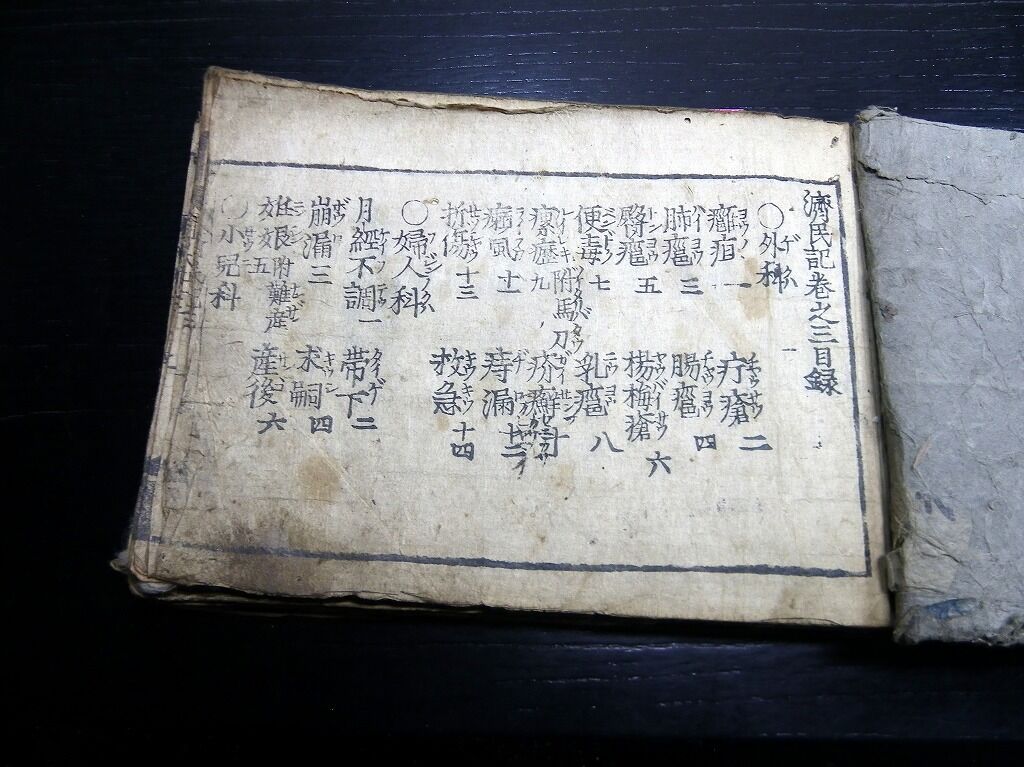 濟民記巻之三目録
〇外科
癰疽 一 疔瘡 二
肺癰 三 腸癰 四
臀癰 五 楊梅瘡 六
便毒 七 乳癰 八
瘰癧 附馬刀 九 疥癬 十
風 十一 痔漏 十二
折傷 十三 救急 十四
〇婦人科
月經不調 一 帯下 二
崩漏 三 求嗣 四
妊娠 附難産 五 産後 六
〇小兒科